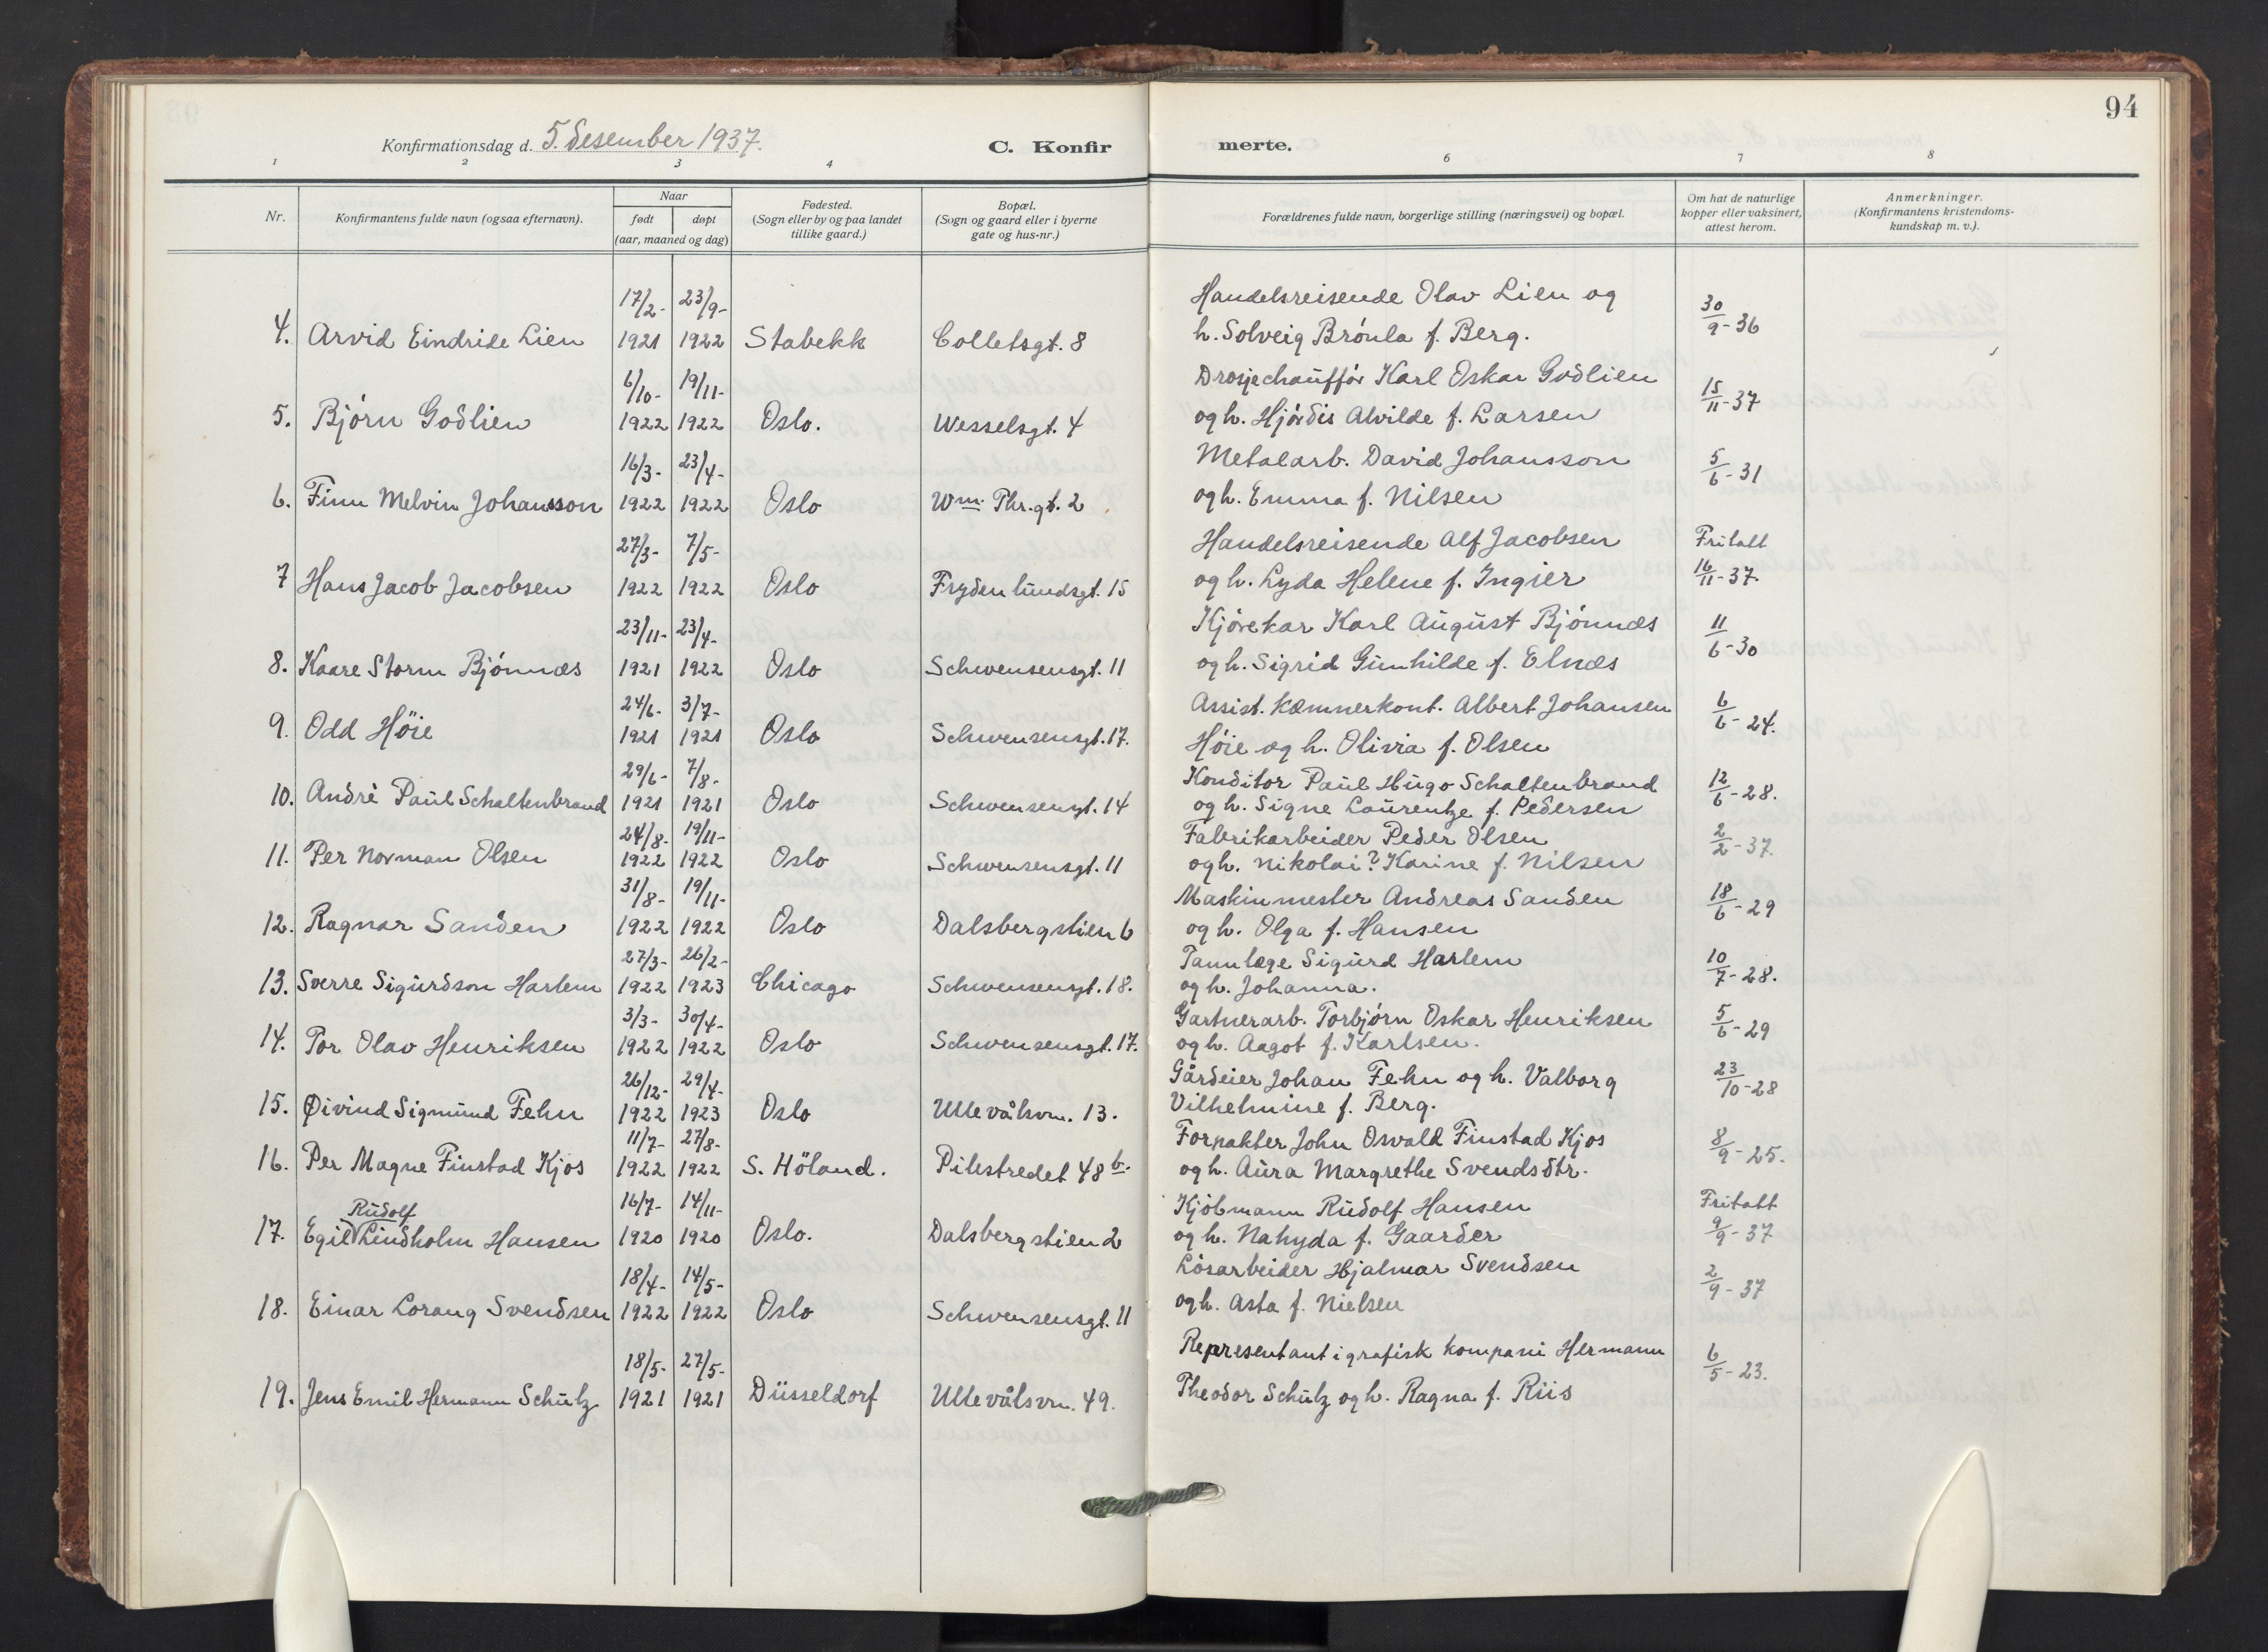 94
Konfirmationsdag d. 5. desember 1937.
C. Konfirmerte.
1 2 3 4 6 7 8
Nr.
Konfirmantens fulde navn (ogsaa efternavn).
Naar
født døpt
(aar, maaned og dag)
Fødested.
(Sogn eller by og paa landet
tillike gaard.)
Bopæl.
(Sogn og gaard eller i byerne
gate og hus-nr.)
Forældrenes fulde navn, borgerlige stilling (næringsvei) og bopæl.
Om hat de naturlige
kopper eller vaksinert,
attest herom.
Anmerkninger.
(Konfirmantens kristendoms-
kundskap m. v.).
17/2- 23/9- Handelsreisende Olav Lien og 30/9-36
4. Arvid Eindride Lien 1921 1922 Stabekk Colletsgt. 8 h. Solveig Brónla f. Berg.
6/10- 19/11- Drosjechauffór Karl Oskar Godlien 15/11-37
5. Bjórn Godlien 1922 1922 Oslo. Wesselsgt. 4 og h. Hjórdis Alvilde f. Larsen
16/3- 23/4- Metalarb. David Johansson 5/6-31
6. Finn Melvin Johansson 1922 1922 Oslo Wm Thr. gt. 2 og h. Emma f. Nilsen
27/3- 7/5- Handelsreisende Alf Jacobsen Fritatt
7 Hans Jacob Jacobsen 1922 1922 Oslo Frydenlundsgt. 15 og h. Lyda Helene f. Ingier 16/11-37.
23/11- 23/4- Kjórekar Karl August Bjónnæs 11/6-30
8. Kaare Storm Bjónnæs 1921 1922 Oslo Schwensensgt. 11 og h. Sigrid Gunhilde f. Elnæs
24/6- 3/7- Assist. kæmnerkont. Albert Johansen 6/6-24.
9. Odd Höie 1921 1921 Oslo Schwensensgt. 17. Hóie og h. Olivia f. Olsen
29/6- 7/8- Konditor Paul Hugo Schaltenbrand 12/6-28.
10. Andrè Paul Schaltenbrand 1921 1921 Oslo Schwensensgt. 14 og h. Signe Laurentze f. Pedersen
24/8- 19/11- Fabrikarbeider Peder Olsen 2/2-37.
11. Per Norman Olsen 1922 1922 Oslo Schwensensgt. 11 og h. Nikolai? Karine f. Nilsen
31/8- 19/11- Maskinmester Andreas Sanden 18/6-29
12. Ragnar Sanden 1922 1922 Oslo Dalsbergstien 6 og h. Olga f. Hansen
27/3- 26/2- Tannlæge Sigurd Harlem 10/7-28.
13. Sverre Sigurdson Harlem 1922 1923 Chicago Schwensensgt. 18. og h. Johanna.
3/3- 30/4- Gartnerarb. Torbjórn Oskar Henriksen 5/6-29
14. Tor Olav Henriksen 1922 1922 Oslo Schwensensgt. 17. og h. Aagot f. Karlsen.
26/12- 29/4- Gårdeier Johan Fehn og h. Valborg 23/10-28
15. Øivind Sigmund Fehn 1922 1923 Oslo Ullevålsvn. 13. Vilhelmine f. Berg.
11/7- 27/8- Forpakter John Osvald Finstad Kjos 8/9-25.
16. Per Magne Finstad Kjos 1922 1922 S. Höland. Pilestredet 48 b. og h. Aura Margrethe Svendsdtr.
Rudolf 16/7- 14/11- Kjóbmann Rudolf Hansen Fritatt
17. Egil Lindholm Hansen 1920 1920 Oslo. Dalsbergstien 2 og h. Nahyda f. Gaarder 9/9-37
18/4- 14/5- Lósarbeider Hjalmar Svendsen 2/9-37
18. Einar Lorang Svendsen 1922 1922 Oslo Schwensensgt. 11 og h. Asta f. Nielsen
18/5- 27/5- Representant i grafisk kompani Hermann 6/5-23.
19. Jens Emil Hermann Schulz 1921 1921 Düsseldorf Ullevålsvn. 49. Theodor Schulz og h. Ragna f. Riis